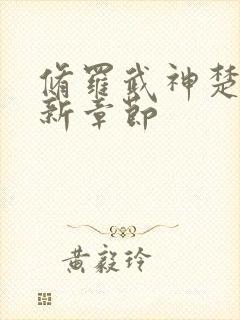 脩羅武神楚
新章節
黃毅玲